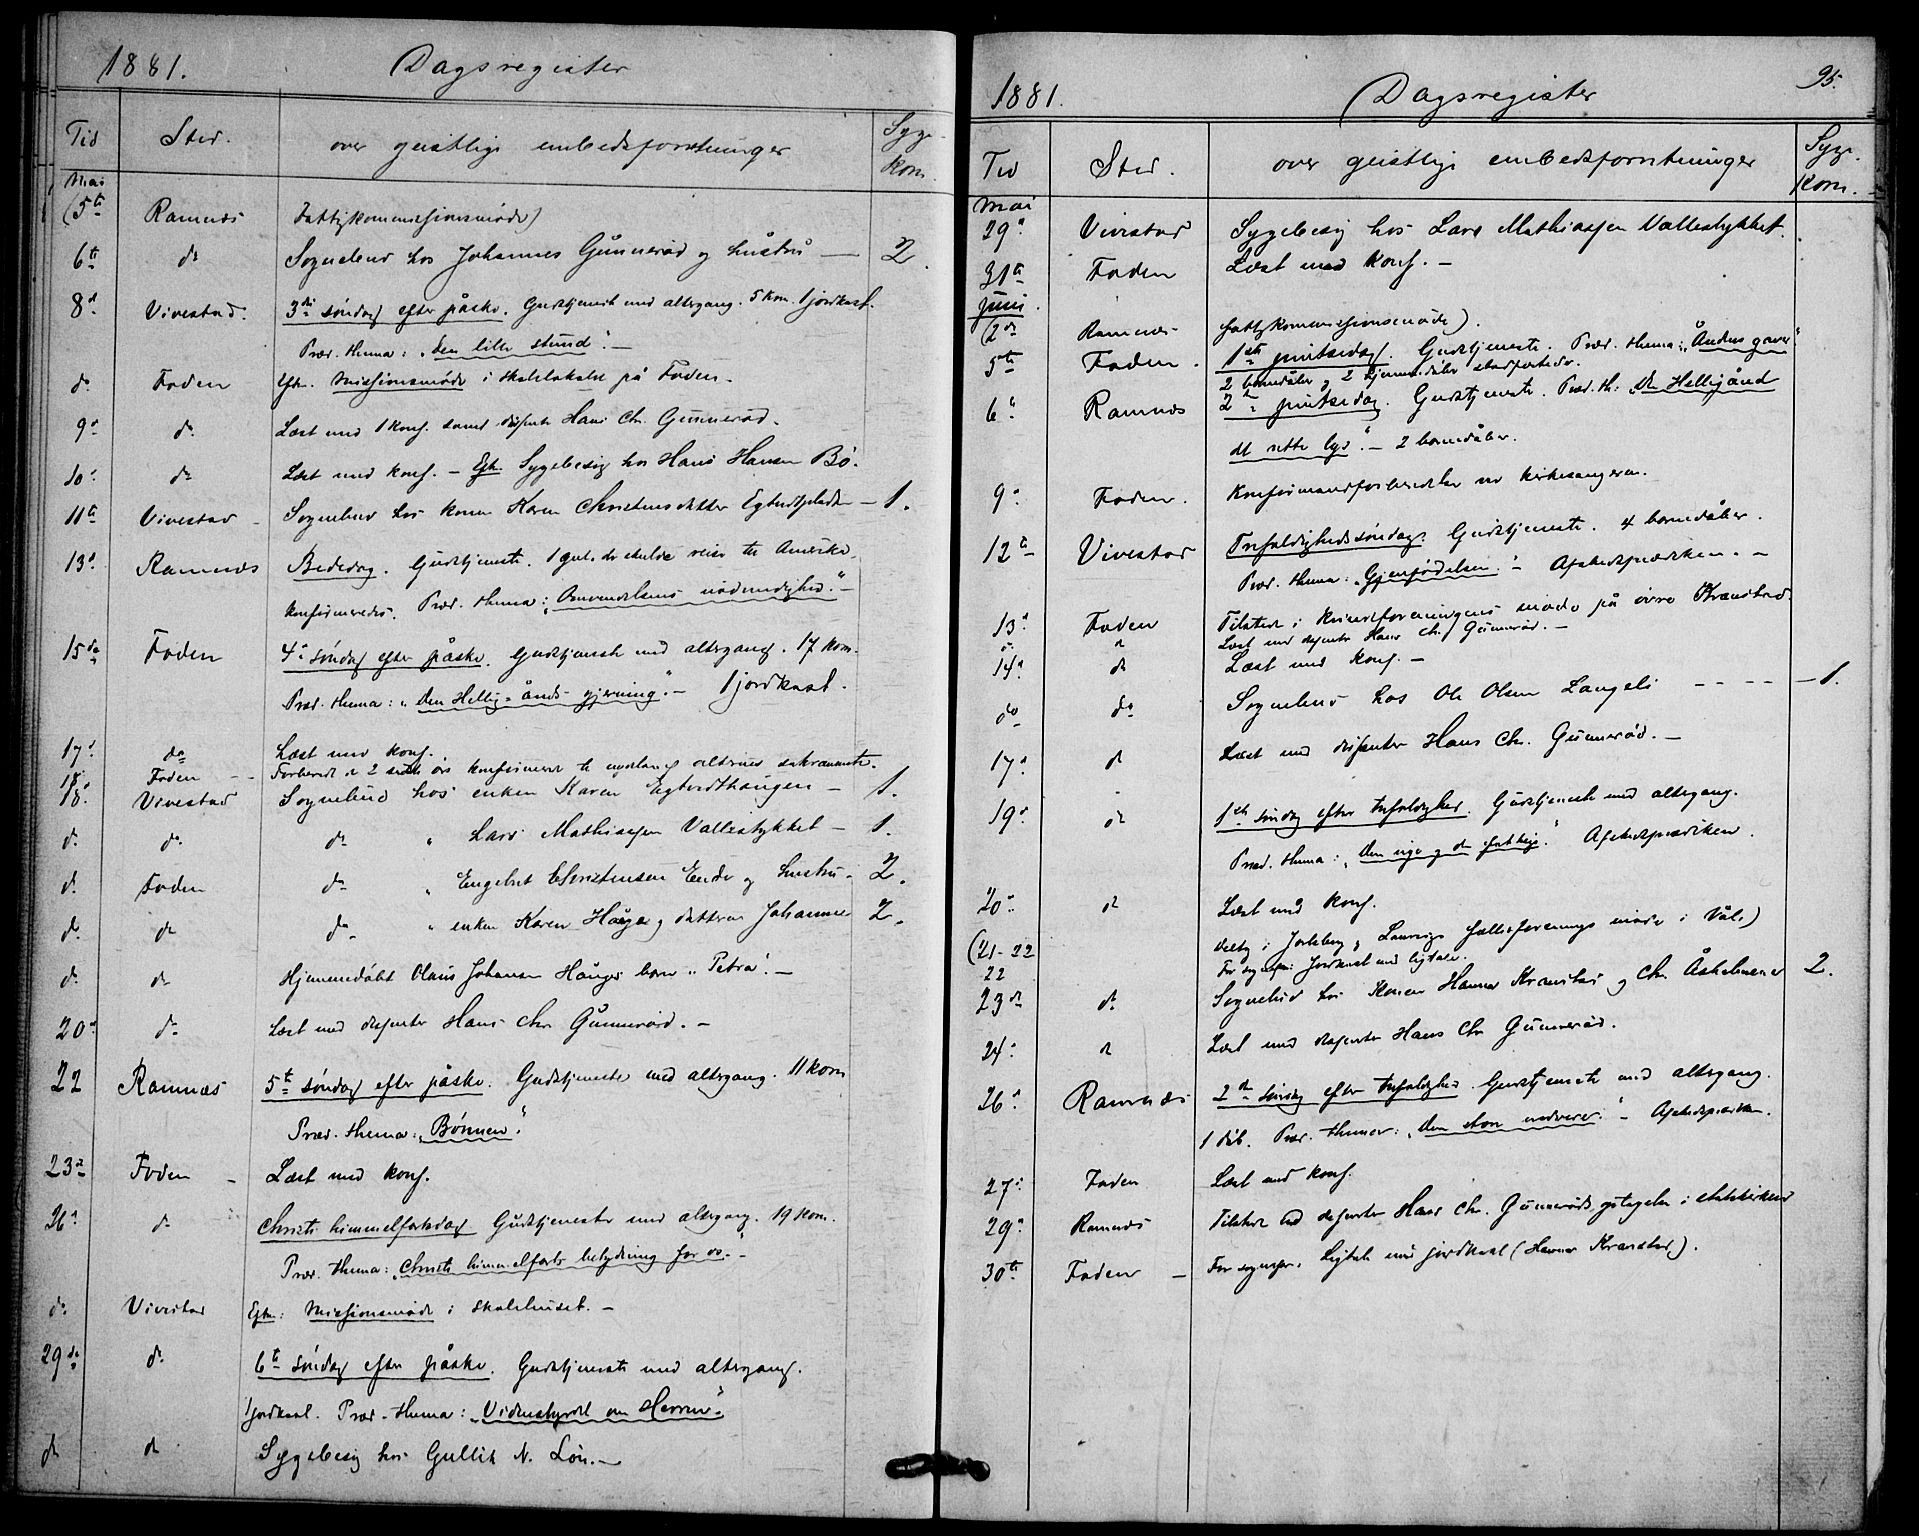 1881. Dagsregister
Tid Sted. over geistlige embedsforretninger Syge-
kom.
Mai
(5te Ramnæs Fattigkommissionsmøde)
6te do Sognebud hos Johannes Gunnerød og hustru — 2.
8d Vivestad. 3die søndag efter påske. Gudstjeneste med altergang. 5 kom. 1 jordkast.
Præd. thema: „Den lille stund". —
do Foden Eft. Missionsmøde i skolelokalet på Foden.
9d do Læst med 1 konf. samt dissenter Hans Chr. Gunnerød.
10d do Læst med konf. — Eft. Sygebesøg hos Hans Hansen Bø.
11te Vivestad - Sognebud hos konen Karen Christensdatter — 1.
13d Ramnæs Bededag. Gudstjeneste. 1 der skulde reise til Amerika,
konfirmeredes. Præd. thema: „Omvendelsens nødvendighed." —
15de Foden 4d søndag efter påske. Gudstjeneste med altergang. 17 kom.
Præd. thema: „Den Hellig-Ånds gjerning". — 1 jordkast.
17d do Læst med konf.
Foden Forberedt 2 konfirmerede til alterens sakramente.
18d Vivestad Sognebud hos enken Karen — 1.
do do do " Lars Mathiassen Vallestykket — 1.
do Foden do " Engebret Christensen Ende og hustru — 2.
do do do " enken Karen Hauge og datteren Johanne 2.
do do Hjemmedøbt Olaus Johansen Hauges barn „Petra". —
20d do Læst med dissenter Hans Chr. Gunnerød. —
22 Ramnæs 5te søndag efter påske. Gudstjeneste med altergang. 11 kom
Præd. thema: „Bønnen".
23d Foden - Læst med konf.
26d do Christi himmelfartsdag Gudstjeneste med altergang. 19 kom.
Præd. thema: „Christi himmelfarts betydning for os". —
do Vivestad Eftm: Missionsmøde i skolehuset. —
29de do 6te søndag efter påske. Gudstjeneste med altergang.
1 jordkast. Præd. thema: „Vidnesbyrdet om Herren".
do do Sygebesøg hos Gullik N. Løn. —
95.
1881. Dagsregister
Tid Sted. over geistlige embedsforretninger Syge-
kom.
Mai
29d Vivestad Sygebesøg hos Lars Mathiassen Vallestykket.
31te Foden Læst med konf. —
Juni
(2d Ramnæs Fattigkommissionsmøde).
5te Foden. 1ste pintsedag. Gudstjeneste. Præd. thema: „Åndens gaver"
2 barnedåber og 2 hjemmedåber stadfæstede.
6d Ramnæs 2den pintsedag. Gudstjeneste. Præd. th: „Den Helligånd
det rette lys". — 2 barnedåber.
9d Foden. Konfirmandforberedelse ved kirkesangeren.
12te Vivestad Trefoldighedssøndag. Gudstjeneste. 4 barnedåber.
Præd. thema: „Gjenfødelsen". — Afskedsprædiken. —
13d Foden Tilstede i kvindeforeningens møde på øvre Kranstad.
do Læst med dissenter Hans Chr. Gunnerød. —
14d do Læst med konf. —
do do Sognebud hos Ole Olsen Langeli - - - - 1.
17d do Læst med dissenter Hans Chr. Gunnerød. —
19d do 1ste søndag efter trefoldighed. Gudstjeneste med altergang.
Præd. thema: „Den rige og den fattige". Afskedsprædiken.
20d do Læst med konf.
(21-22 Deltog i Jarlsberg og Laurvigs fællesforenings møde i Våle)
22 For sognepr. Jordkast med ligtale.
23de do Sognebud hos konen Hanna Kranstad og Chr. 2.
24d do Læst med dissenter Hans Chr. Gunnerød.
26d Ramnæs 2den søndag efter trefoldighed Gudstjeneste med altergang.
1 dåb. Præd. thema: „Den store nadvere". — Afskedsprædiken.
27d Foden Læst med konf.
29d Ramnæs Tilstede ved dissenter Hans Chr. Gunnerøds optagelse i statskirken
30te Foden - For sognepr. Ligtale med jordkast (Hanna Kranstad).